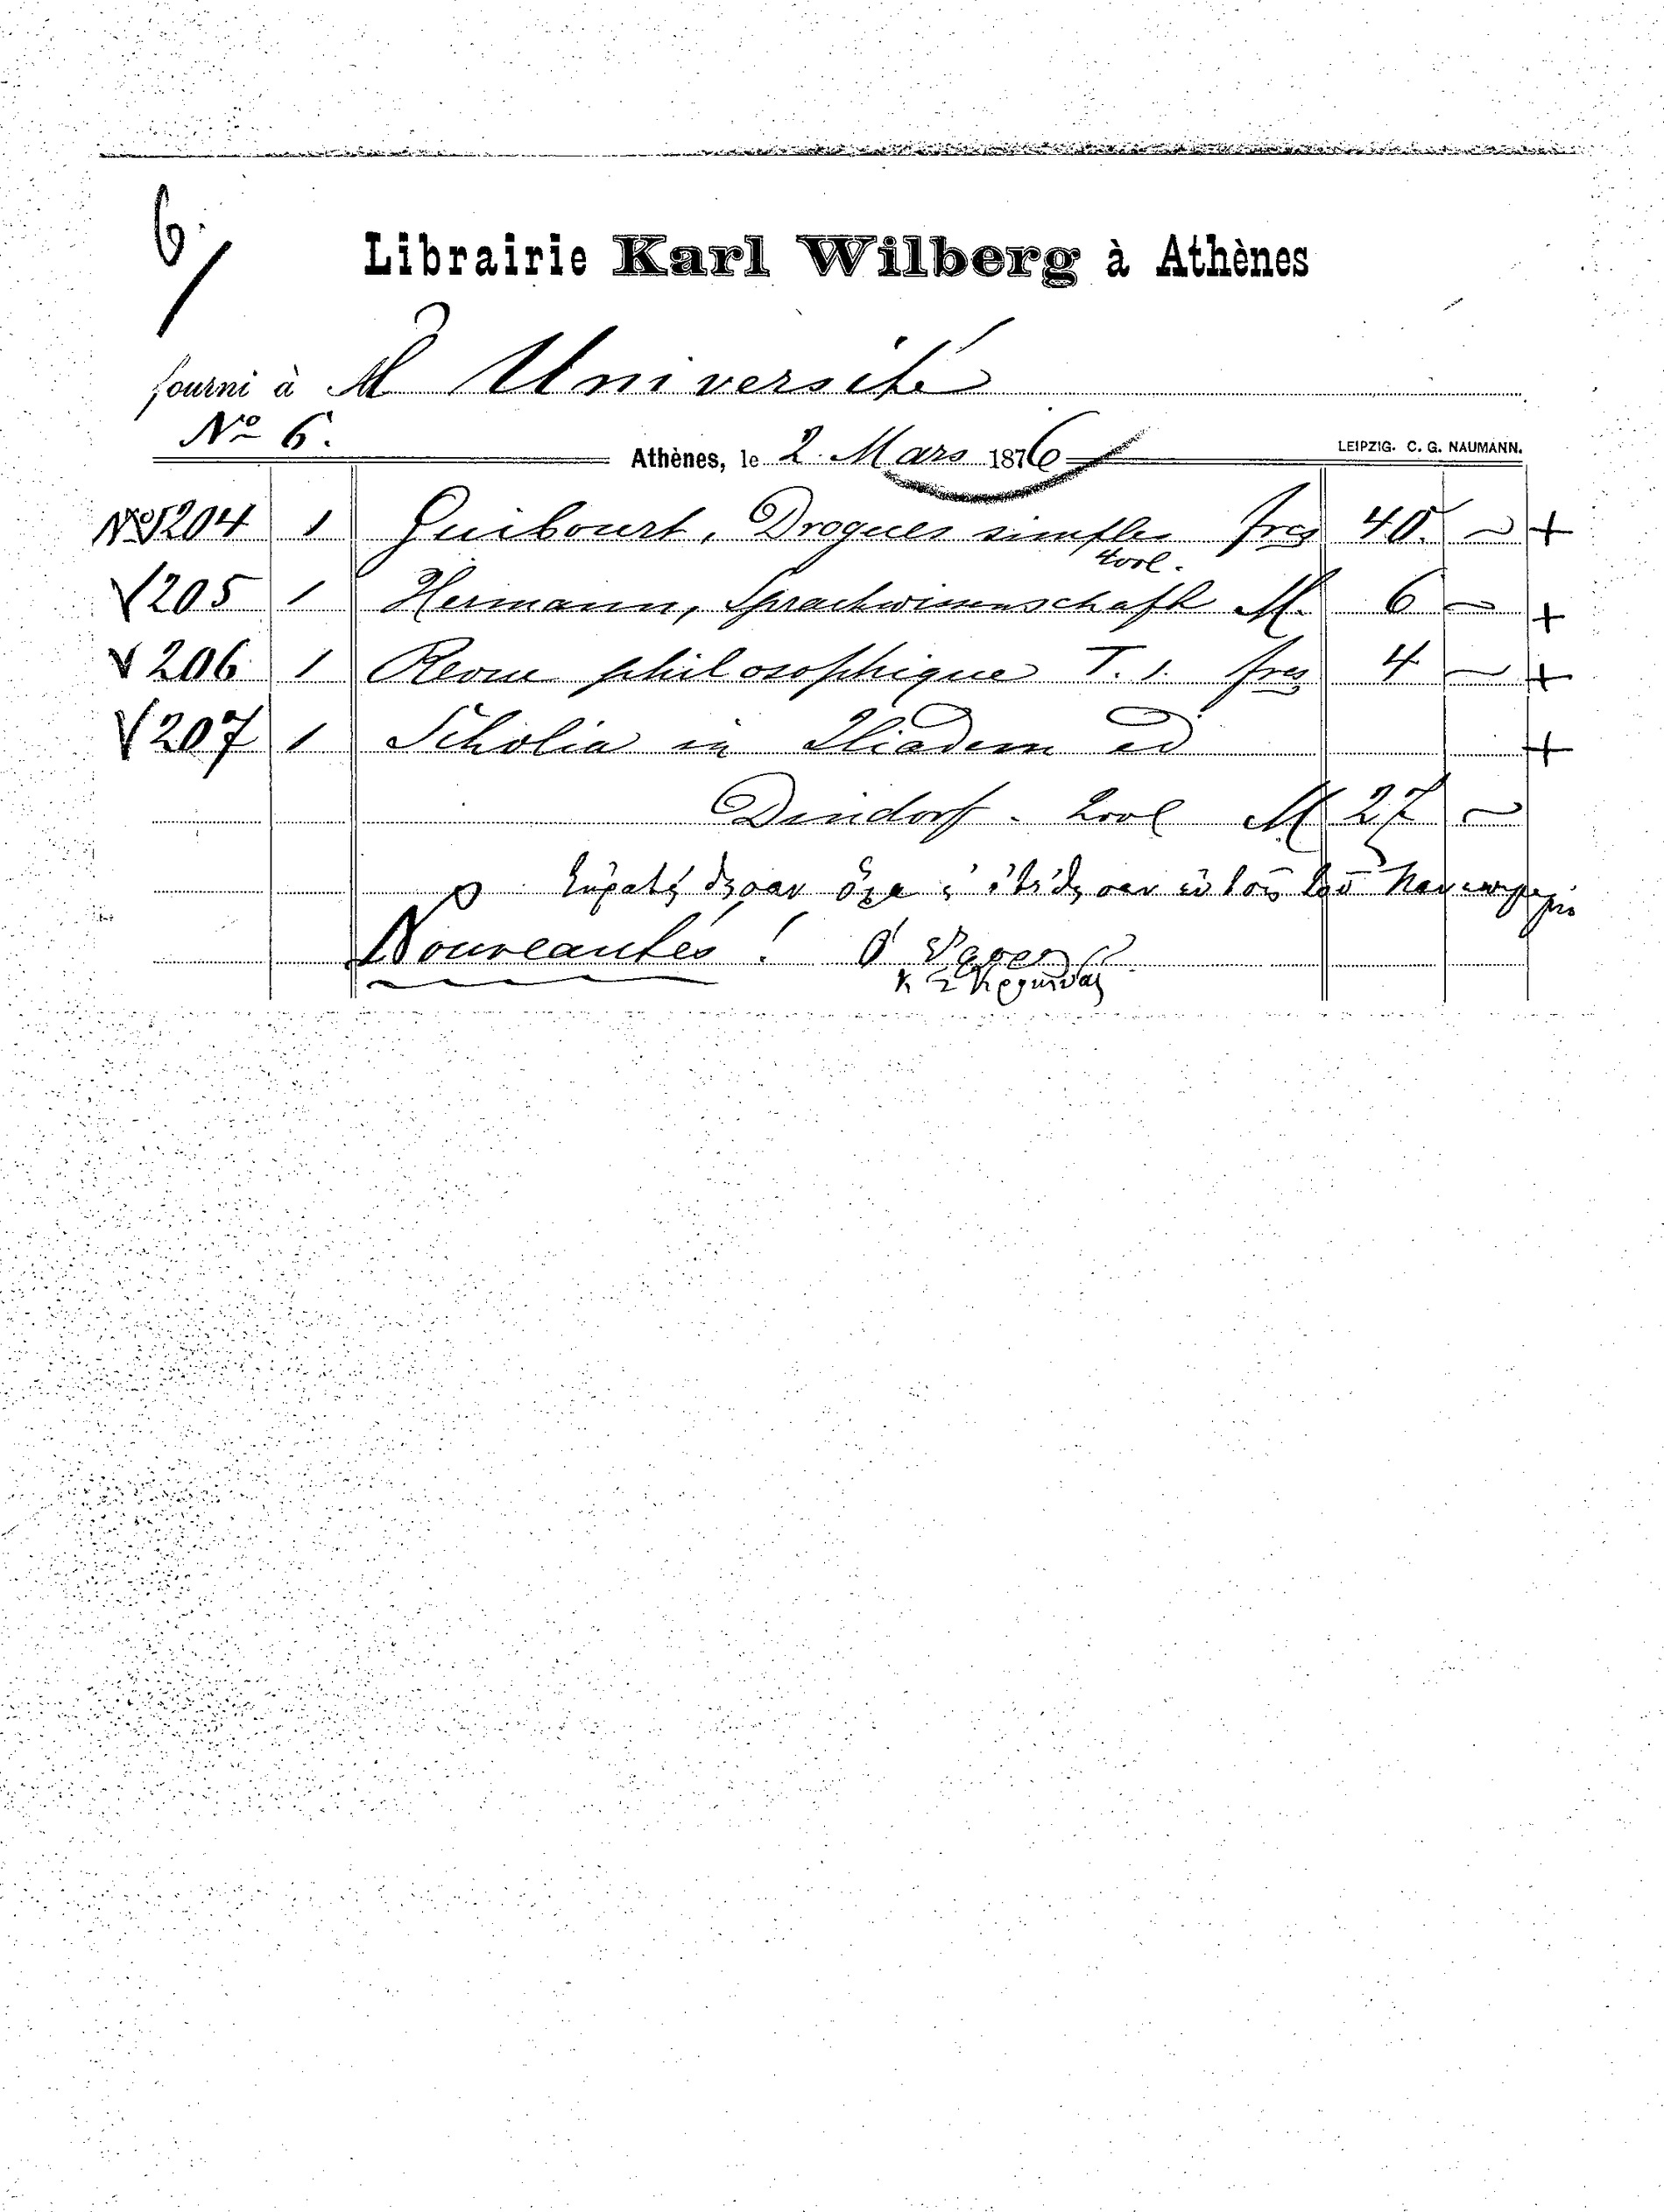 6
Librairie Karl Wilberg à Athènes
fourni à M Université
No 6.
Athènes, le 2. Mars 1876
LEIPZIG. C. G. NAUMANN.
No 204 1 Guibourt, Drogues simples frcs 40. —
4 vol.
205 1 Hermann, Sprachwissenschaft M. 6 —
206 1 Revue philosophique T. 1. frcs 4 —
207 1 Scholia in Iliadem ed
Dindorf. 2 vol M 27 —
ὅλα τοῦ
Nouveautés!